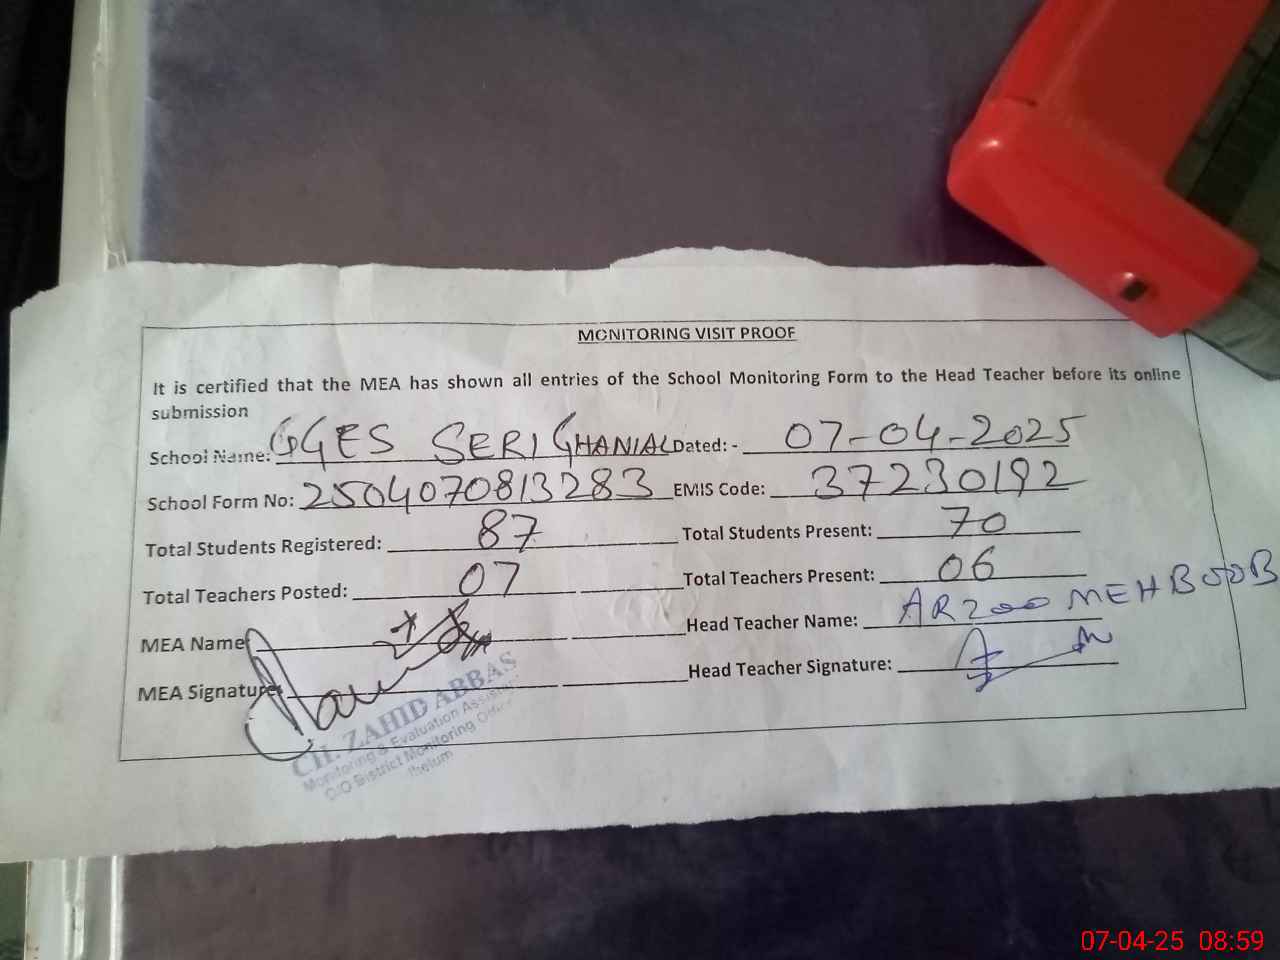 MONITORING VISIT PROOF
It is certified that the MEA has shown all entries of the School Monitoring Form to the Head Teacher before its online
submission
School Name: GGES SERI GHANIAL Dated: - 07-04-2025
School Form No: 2504070813283 EMIS Code: 37230192
Total Students Registered: 87 Total Students Present: 70
Total Teachers Posted: 07 Total Teachers Present: 06
MEA Name Head Teacher Name: ARZOO MEHBOOB
MEA Signature Head Teacher Signature:
CH. ZAHID ABBAS
Monitoring & Evaluation Assistant
C/O District Monitoring Office
Jhelum
07-04-25 08:59